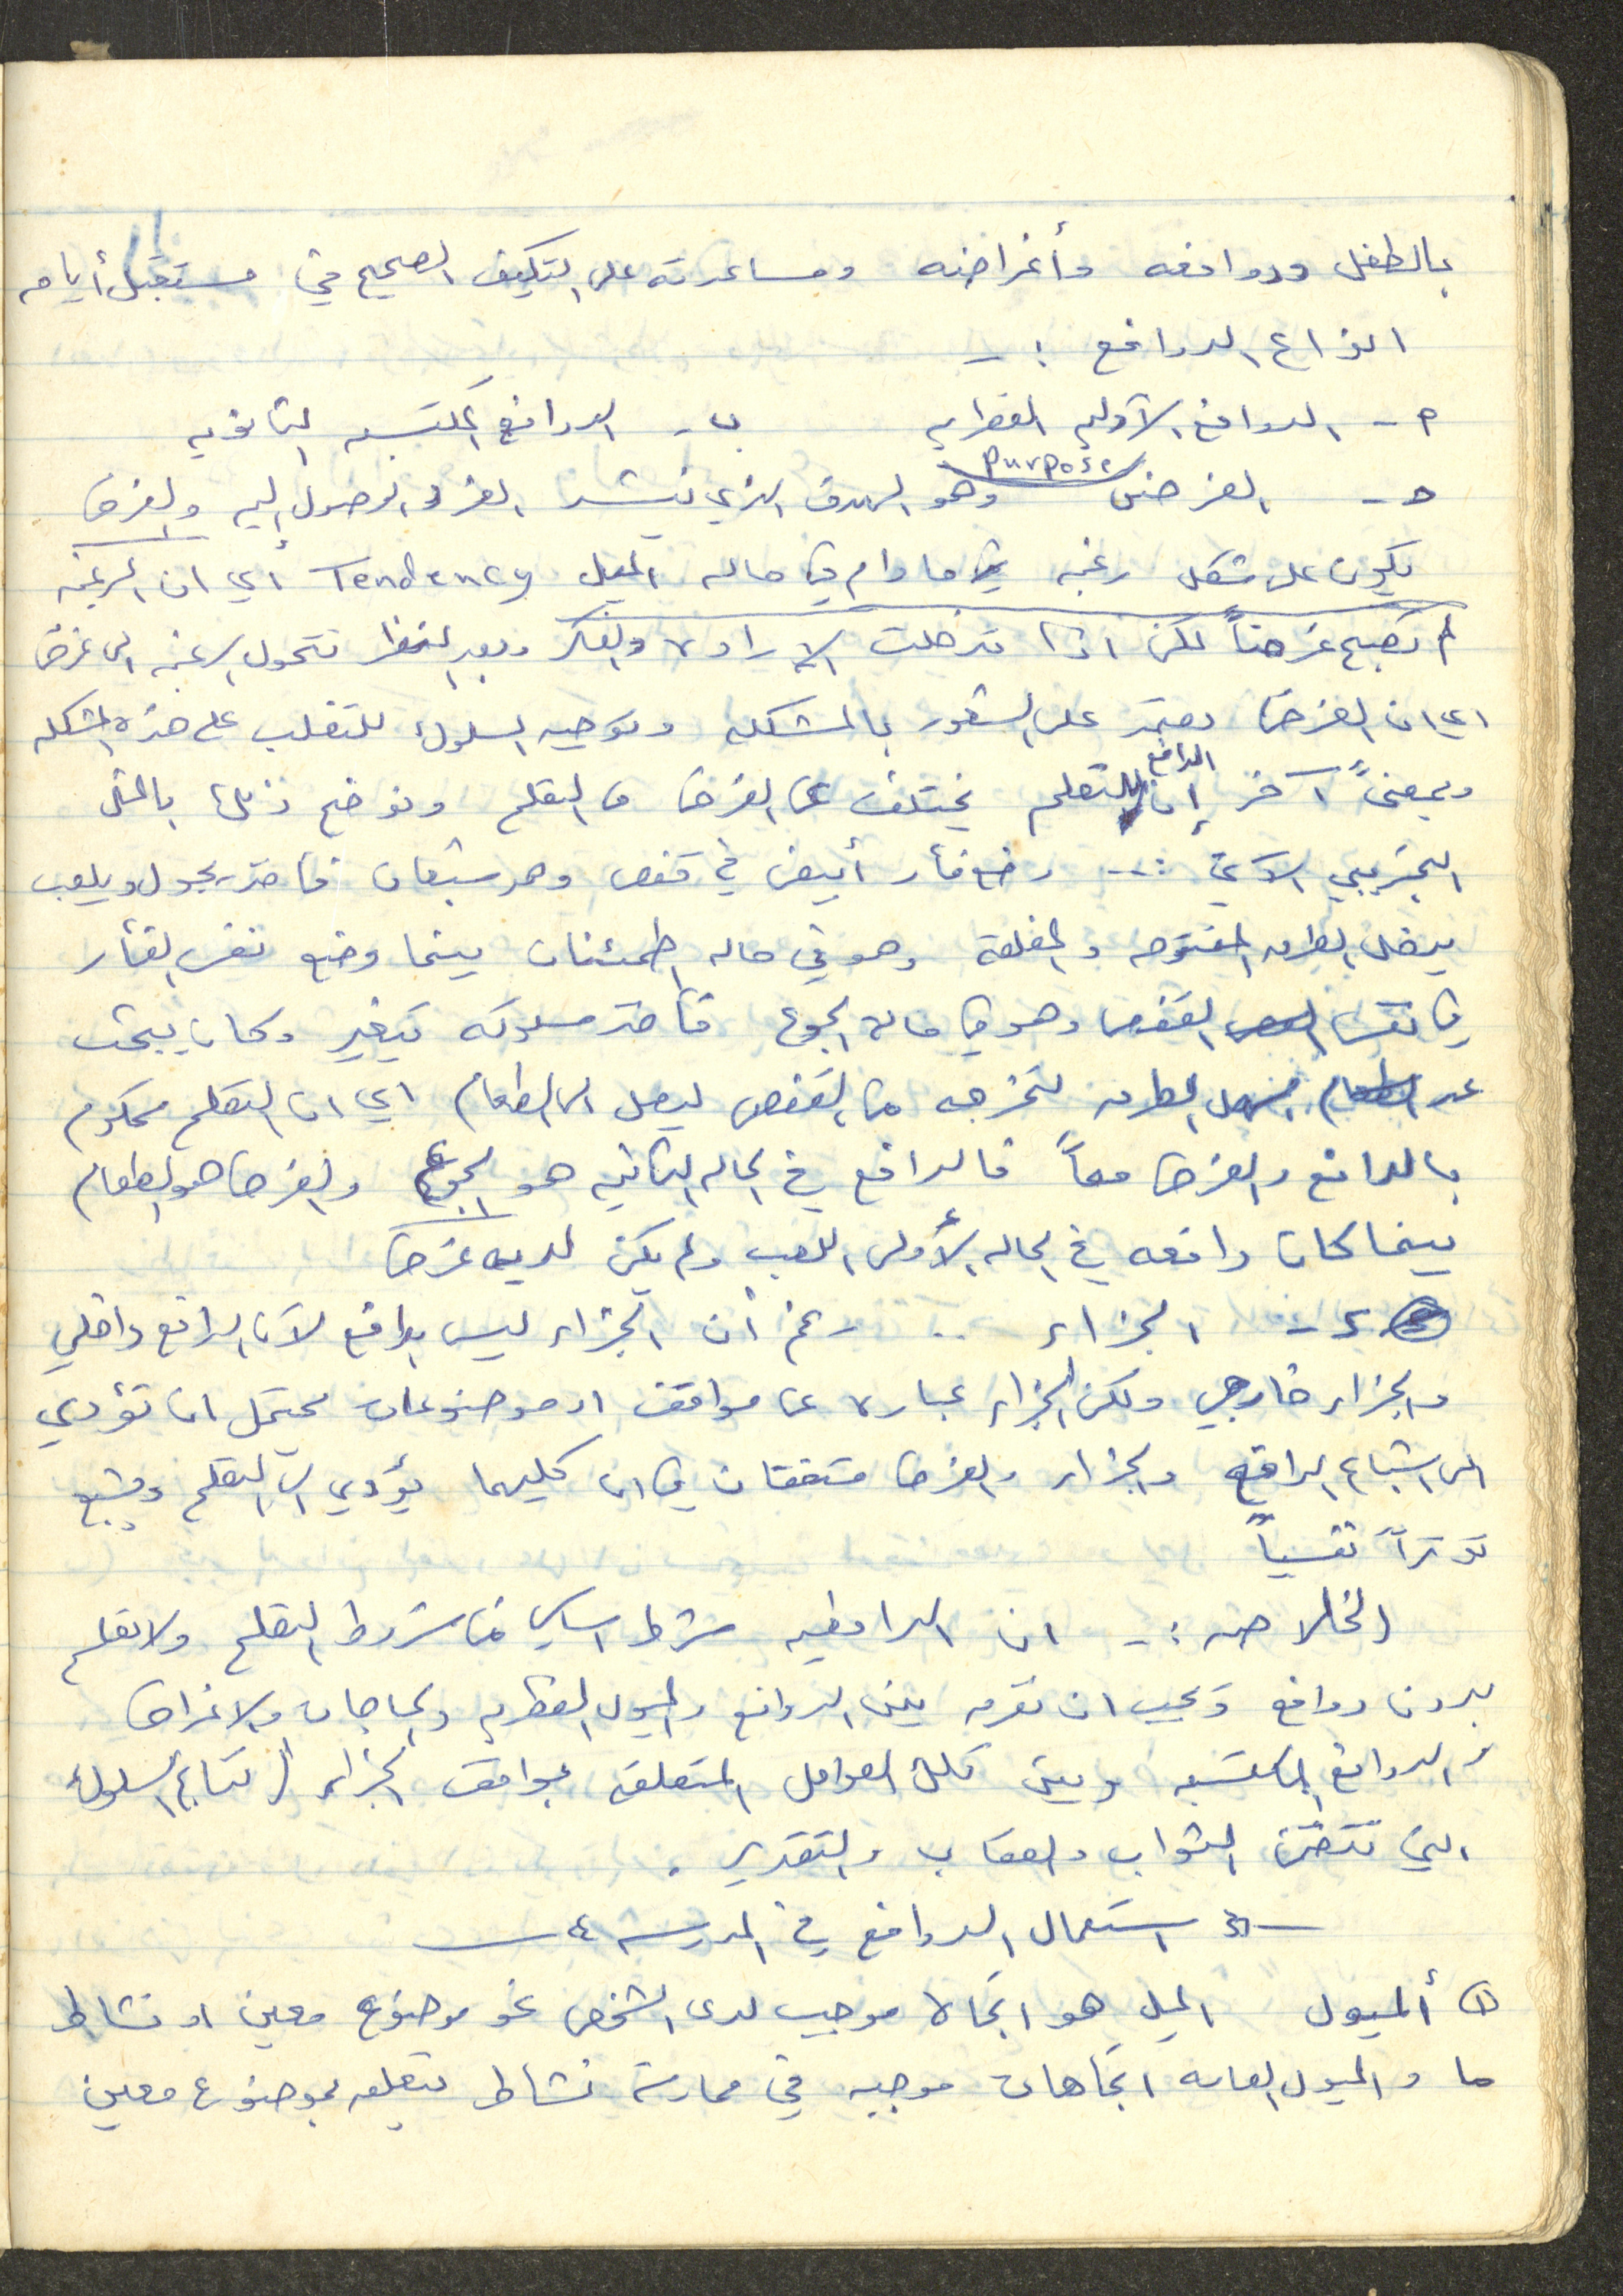 بالطفل ودوافعه وأغراضه ومساعدته على التكيف الصحيح في مستقبل أيامه
انواع الدوافع :ـ
أ - الدوافع الأوليه الفطريه ب - الدوافع المكتسبه الثانويه
purpose
ج - الغرض وهو الهدف الذي ينشد الفرد الوصول اليه والغرض
يكون على شكل رغبه ما دام في حاله الميل Tendency أي ان الرغبه
تصبح غرضاً لكن اذا تدخلت الاراده والفكر وبعد النظر تتحول الرغبه الى غرض
اي ان الغرض يعتمد على الشعور بالمشكله وتوجيه السلوك للتغلب على هذه المشكله
الدافع
وبمعنىً آخر إن للتعلم يختلف عن الغرض من التعلم ونوضح ذلك بالمثل
التجريبي الآتي :ـ وضع فأر أبيض في قفص وهو شبعان فأخذ يجول ويلعب
يدخل الطرق المفتوحه والمغلقة وهو في حاله اطمئنان بينما وضع نفس الفأر
في نفس القفص وهو في حالة الجوع فأخذ سلوكه يتغير وكان يبحث
عن الطرق لتخرجه من القفص ليصل الى الطعام اي ان التعلم محكوم
بالدافع والغرض معاً فالدافع في الحاله الثانيه هو الجوع والغرض هو الطعام
بينما كان دافعه في الحاله الأولى اللعب ولم يكن لديه غرض
د - الجزاء .. رغم أن الجزاء ليس بدافع لأن الدافع داخلي
والجزاء خارجي ولكن الجزاء عباره عن مواقف او موضوعات محتمل ان تؤدي
الى اشباع الدافع والجزاء والغرض متفقان في ان كليهما يؤدي الى التعلم ويشبع
توتراً نفسياً
الخلاصه :ـ ان الدافعيه شرط اساسي من شروط التعلم ولا تعلم
بدون دوافع ويجب ان نفرق بين الدوافع والميول الفطريه والحاجات والاغراض
والدوافع المكتسبه وبين تلك العوامل المتعلقه بمواقف الجزاء ( نتائج السلوك
التي تتضمن الثواب والعقاب والتقدير .
استعمال الدوافع في المدرسه
١) ألميول الميل هو اتجاه موجب لدى الشخص نحو موضوع معين او نشاط
ما والميول العامه اتجاهات موجبه في ممارسة نشاط يتعلق بموضوع معين